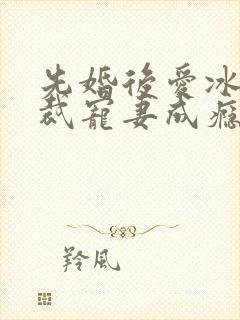 先婚後愛冰
裁寵妻成癮
羚風